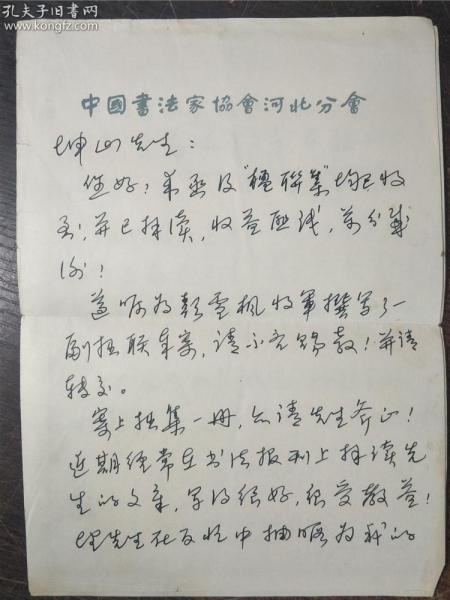 孔夫子旧书网
www.kongfz.com
中國書法家協會河北分會
坤山先生：
您好！来函及“楹联集”均已收
到，并已拜读，收益匪浅，万分感
谢！
遵嘱为彭雪枫将军撰写了一
副拙联奉寄，请不吝赐教！并请
转交。
寄上拙集一册，亦请先生斧正！
近期经常在书法报刊上拜读先
生的文章，写得很好，很受教益！
先生在百忙中抽暇为我的